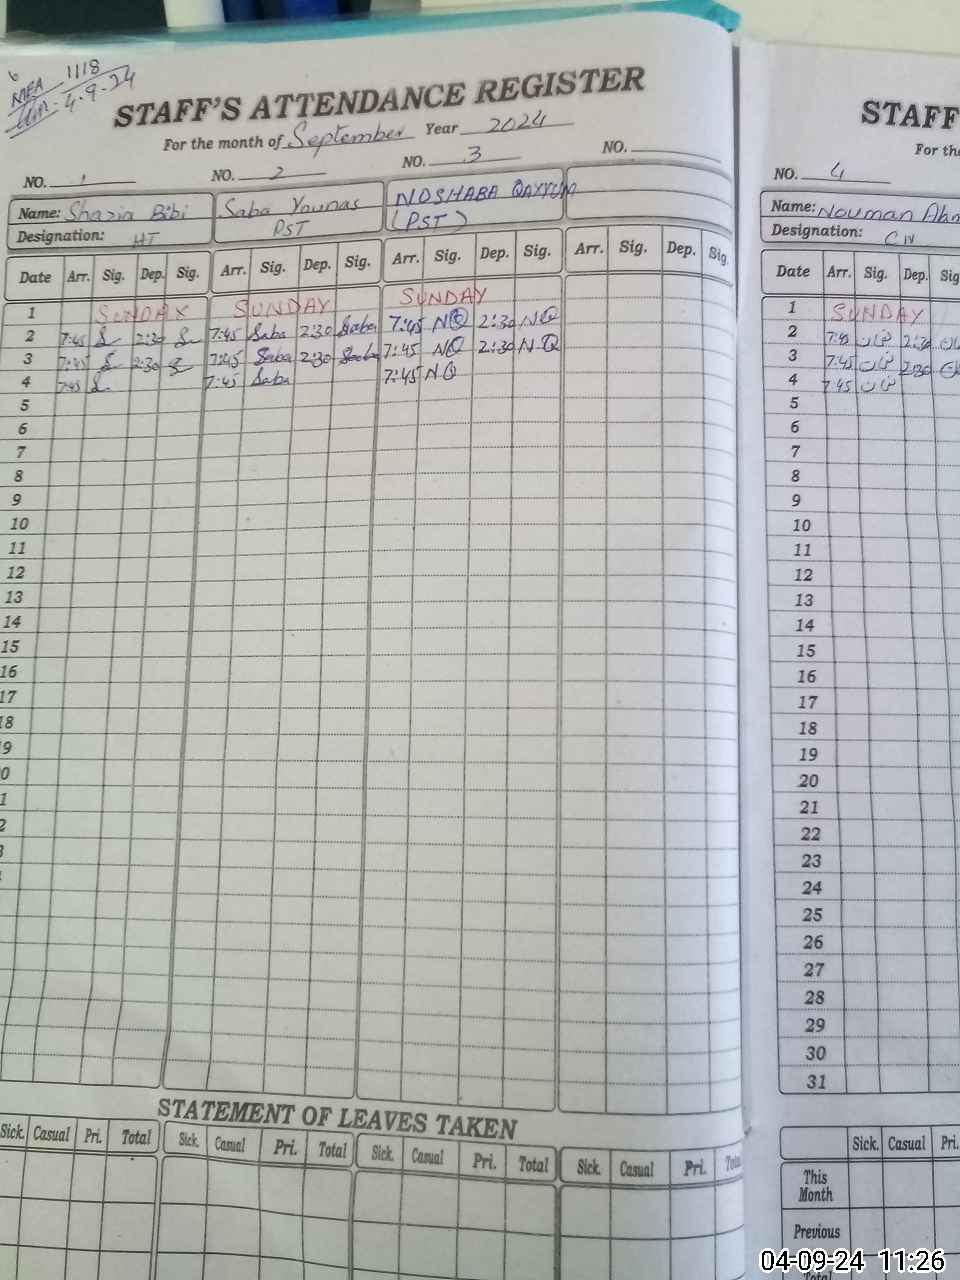 6
MEA 1118
4.9.24
STAFF'S ATTENDANCE REGISTER
For the month of September Year 2024
NO. 1 NO. 2 NO. 3 NO.
Name: Shazia Bibi Saba Younas NOSHABA QAYYUM
Designation: HT PST (PST)
Date Arr. Sig. Dep. Sig. Arr. Sig. Dep. Sig. Arr. Sig. Dep. Sig. Arr. Sig. Dep. Sig.
1 SUNDAY SUNDAY SUNDAY
2 7:45 2:30 7:45 Saba 2:30 Saba 7:45 NQ 2:30 NQ
3 7:45 2:30 7:45 Saba 2:30 Saba 7:45 NQ 2:30 NQ
4 7:45 7:45 Saba 7:45 NQ
5
6
7
8
9
10
11
12
13
14
15
16
17
18
9
0
1
2
3
STATEMENT OF LEAVES TAKEN
Sick. Casual Pri. Total Sick. Casual Pri. Total Sick. Casual Pri. Total Sick. Casual Pri. Total
STAFF
For the
NO. 4
Name: Nouman Ahm
Designation:
Date Arr. Sig. Dep. Sig
1 SUNDAY
2 7:45 2:30
3 7:45 2:30
4 7:45
5
6
7
8
9
10
11
12
13
14
15
16
17
18
19
20
21
22
23
24
25
26
27
28
29
30
31
Sick. Casual Pri.
This
Month
Previous
Total
04-09-24 11:26